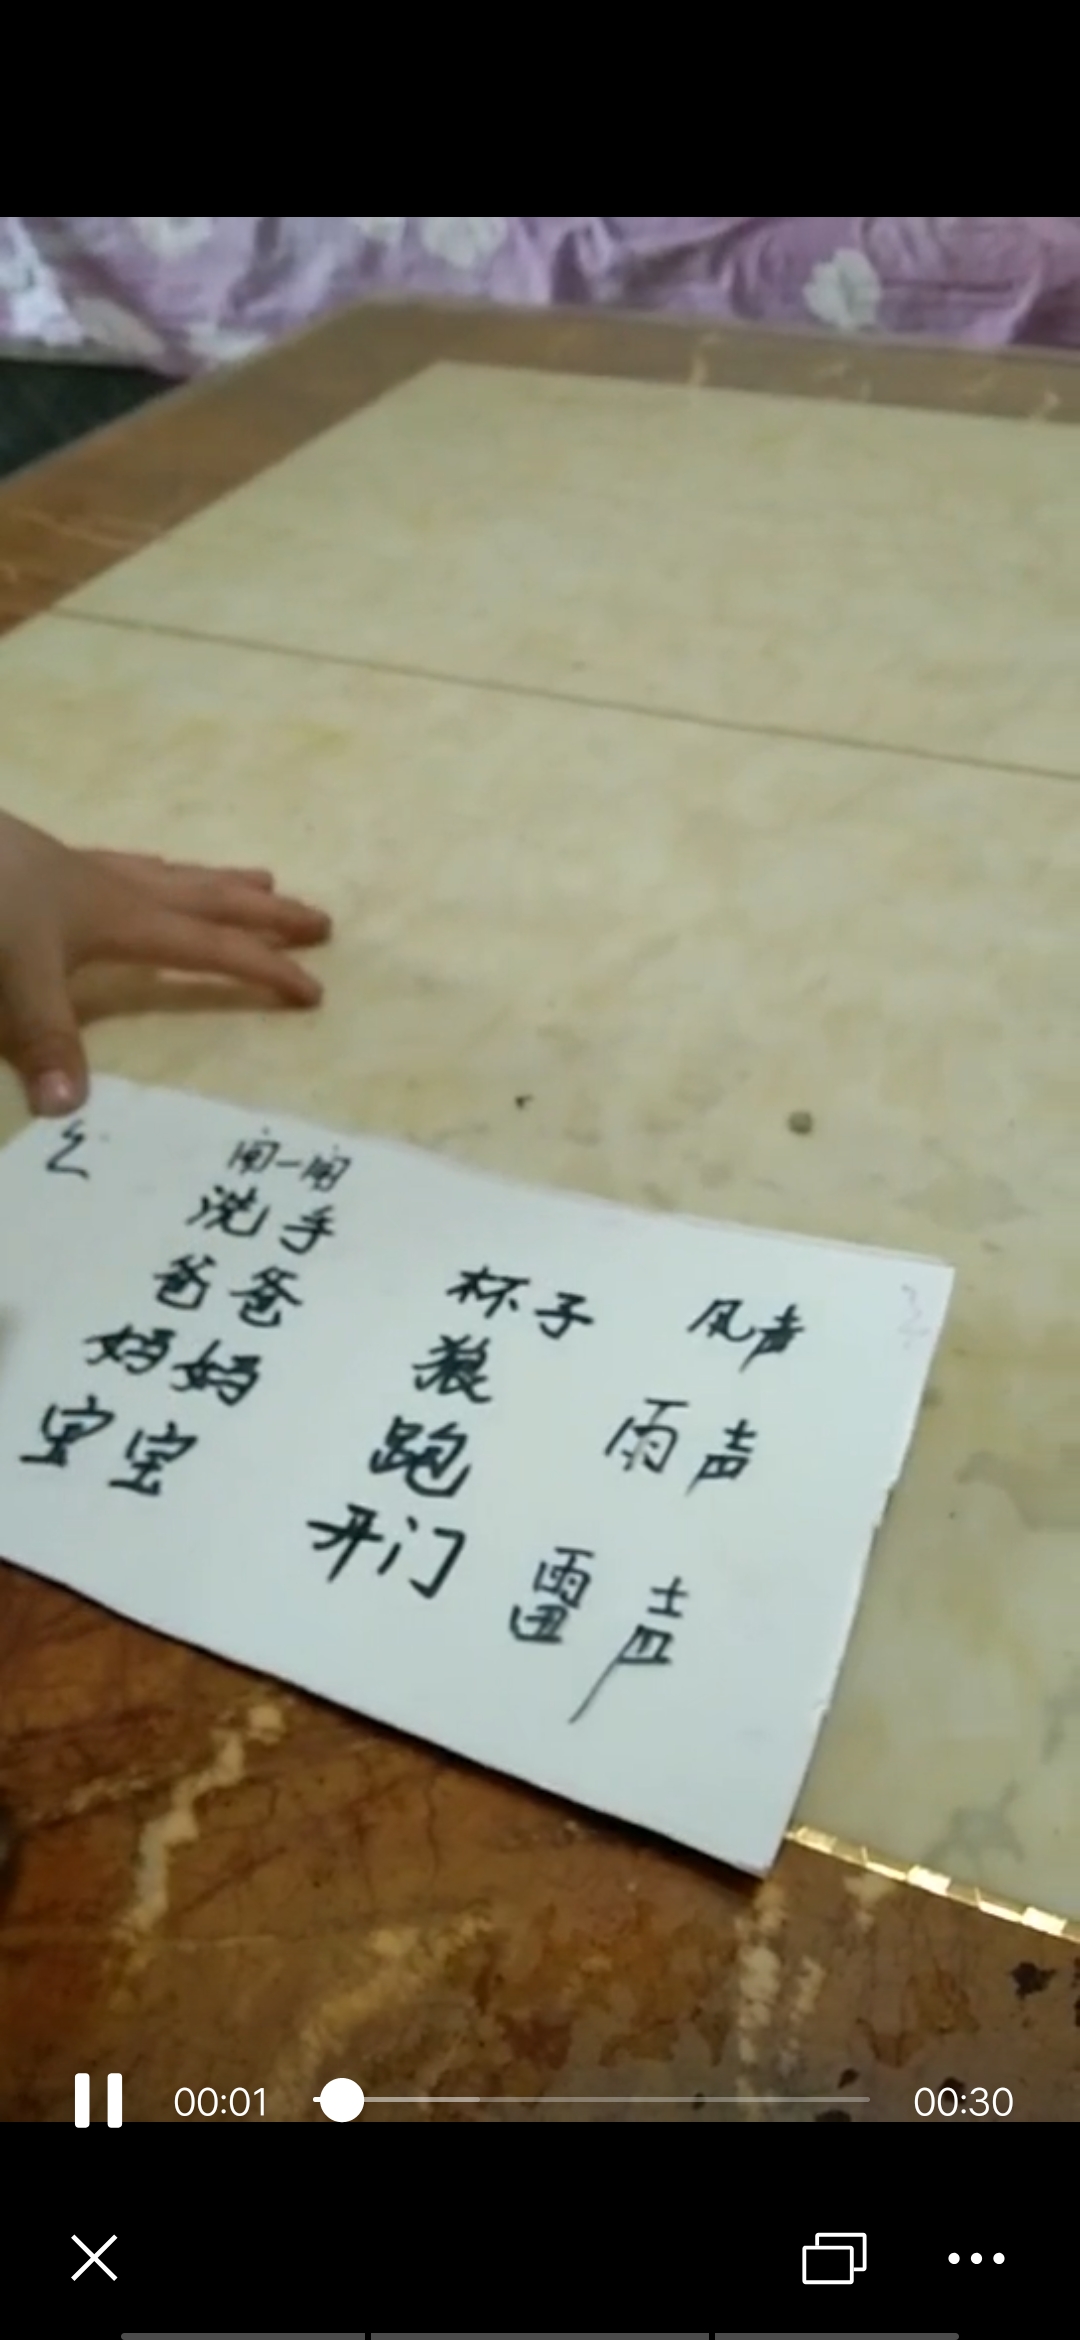 洗手
爸爸
妈妈
宝宝
杯子
狼
跑
开门
风声
雨声
雷声
00:01
00:30